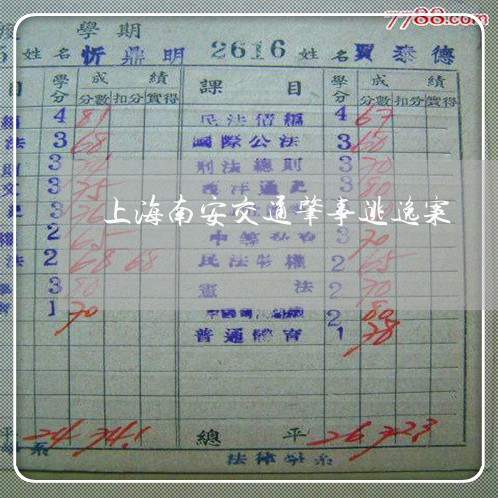 7788.com
學期
姓名 忻鼎明 2616 姓名 賈泰德
目 學分 成績 課目 學分 成績
分數 扣分 實得 分數 扣分 實得
4 81 民法債編 4 67
法 3 68 國際公法 3 60
3 刑法總則 3 70
3 75 西洋通史 3 80
上海南安交通肇事逃逸案
2 65 3 70
法 2 68 68 民法物權 2 65
3 80 憲法 2 70
1 70 2 80
普通體育 1 78
平 24 74.1 總平 26 72.3
系 法律學系